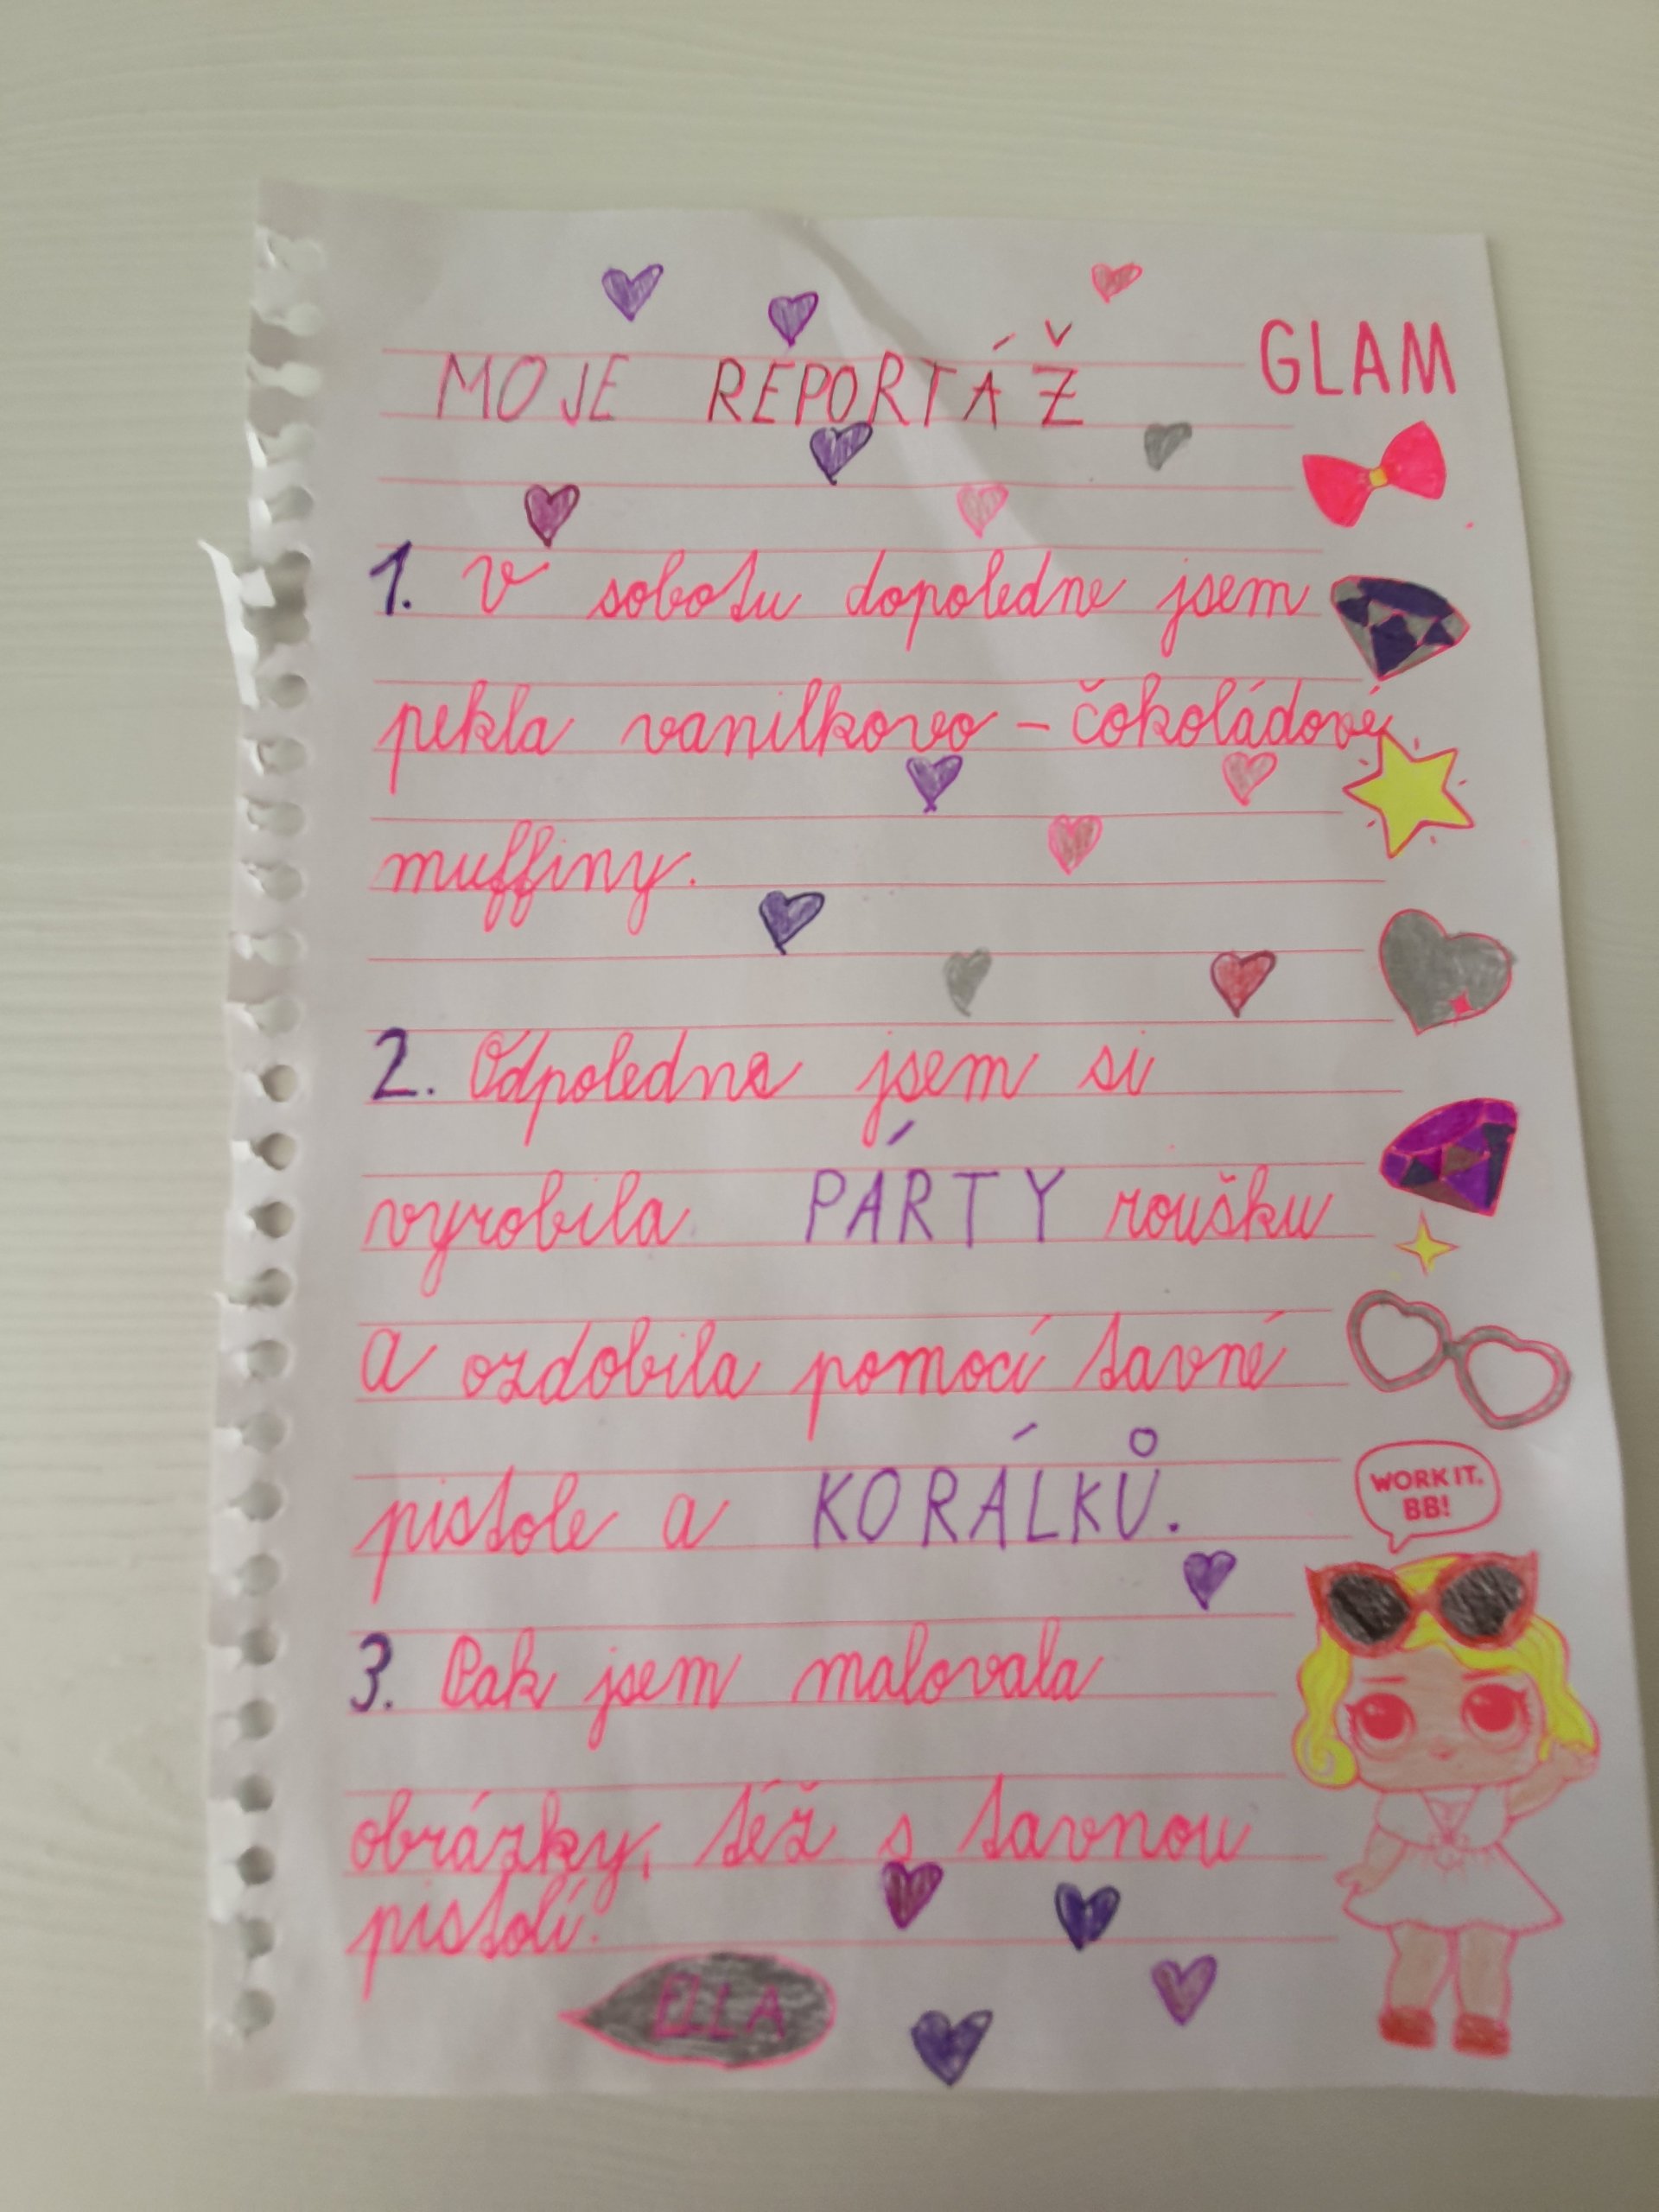 MOJE REPORTÁŽ
GLAM
1. V sobotu dopoledne jsem
pekla vanilkovo - čokoládové
muffiny.
2. Odpoledne jsem si
vyrobila PÁRTY roušku
a ozdobila pomocí tavné
pistole a KORÁLKŮ.
WORK IT,
BB!
3. Pak jsem malovala
obrázky, též s tavnou
pistolí.
ELLA